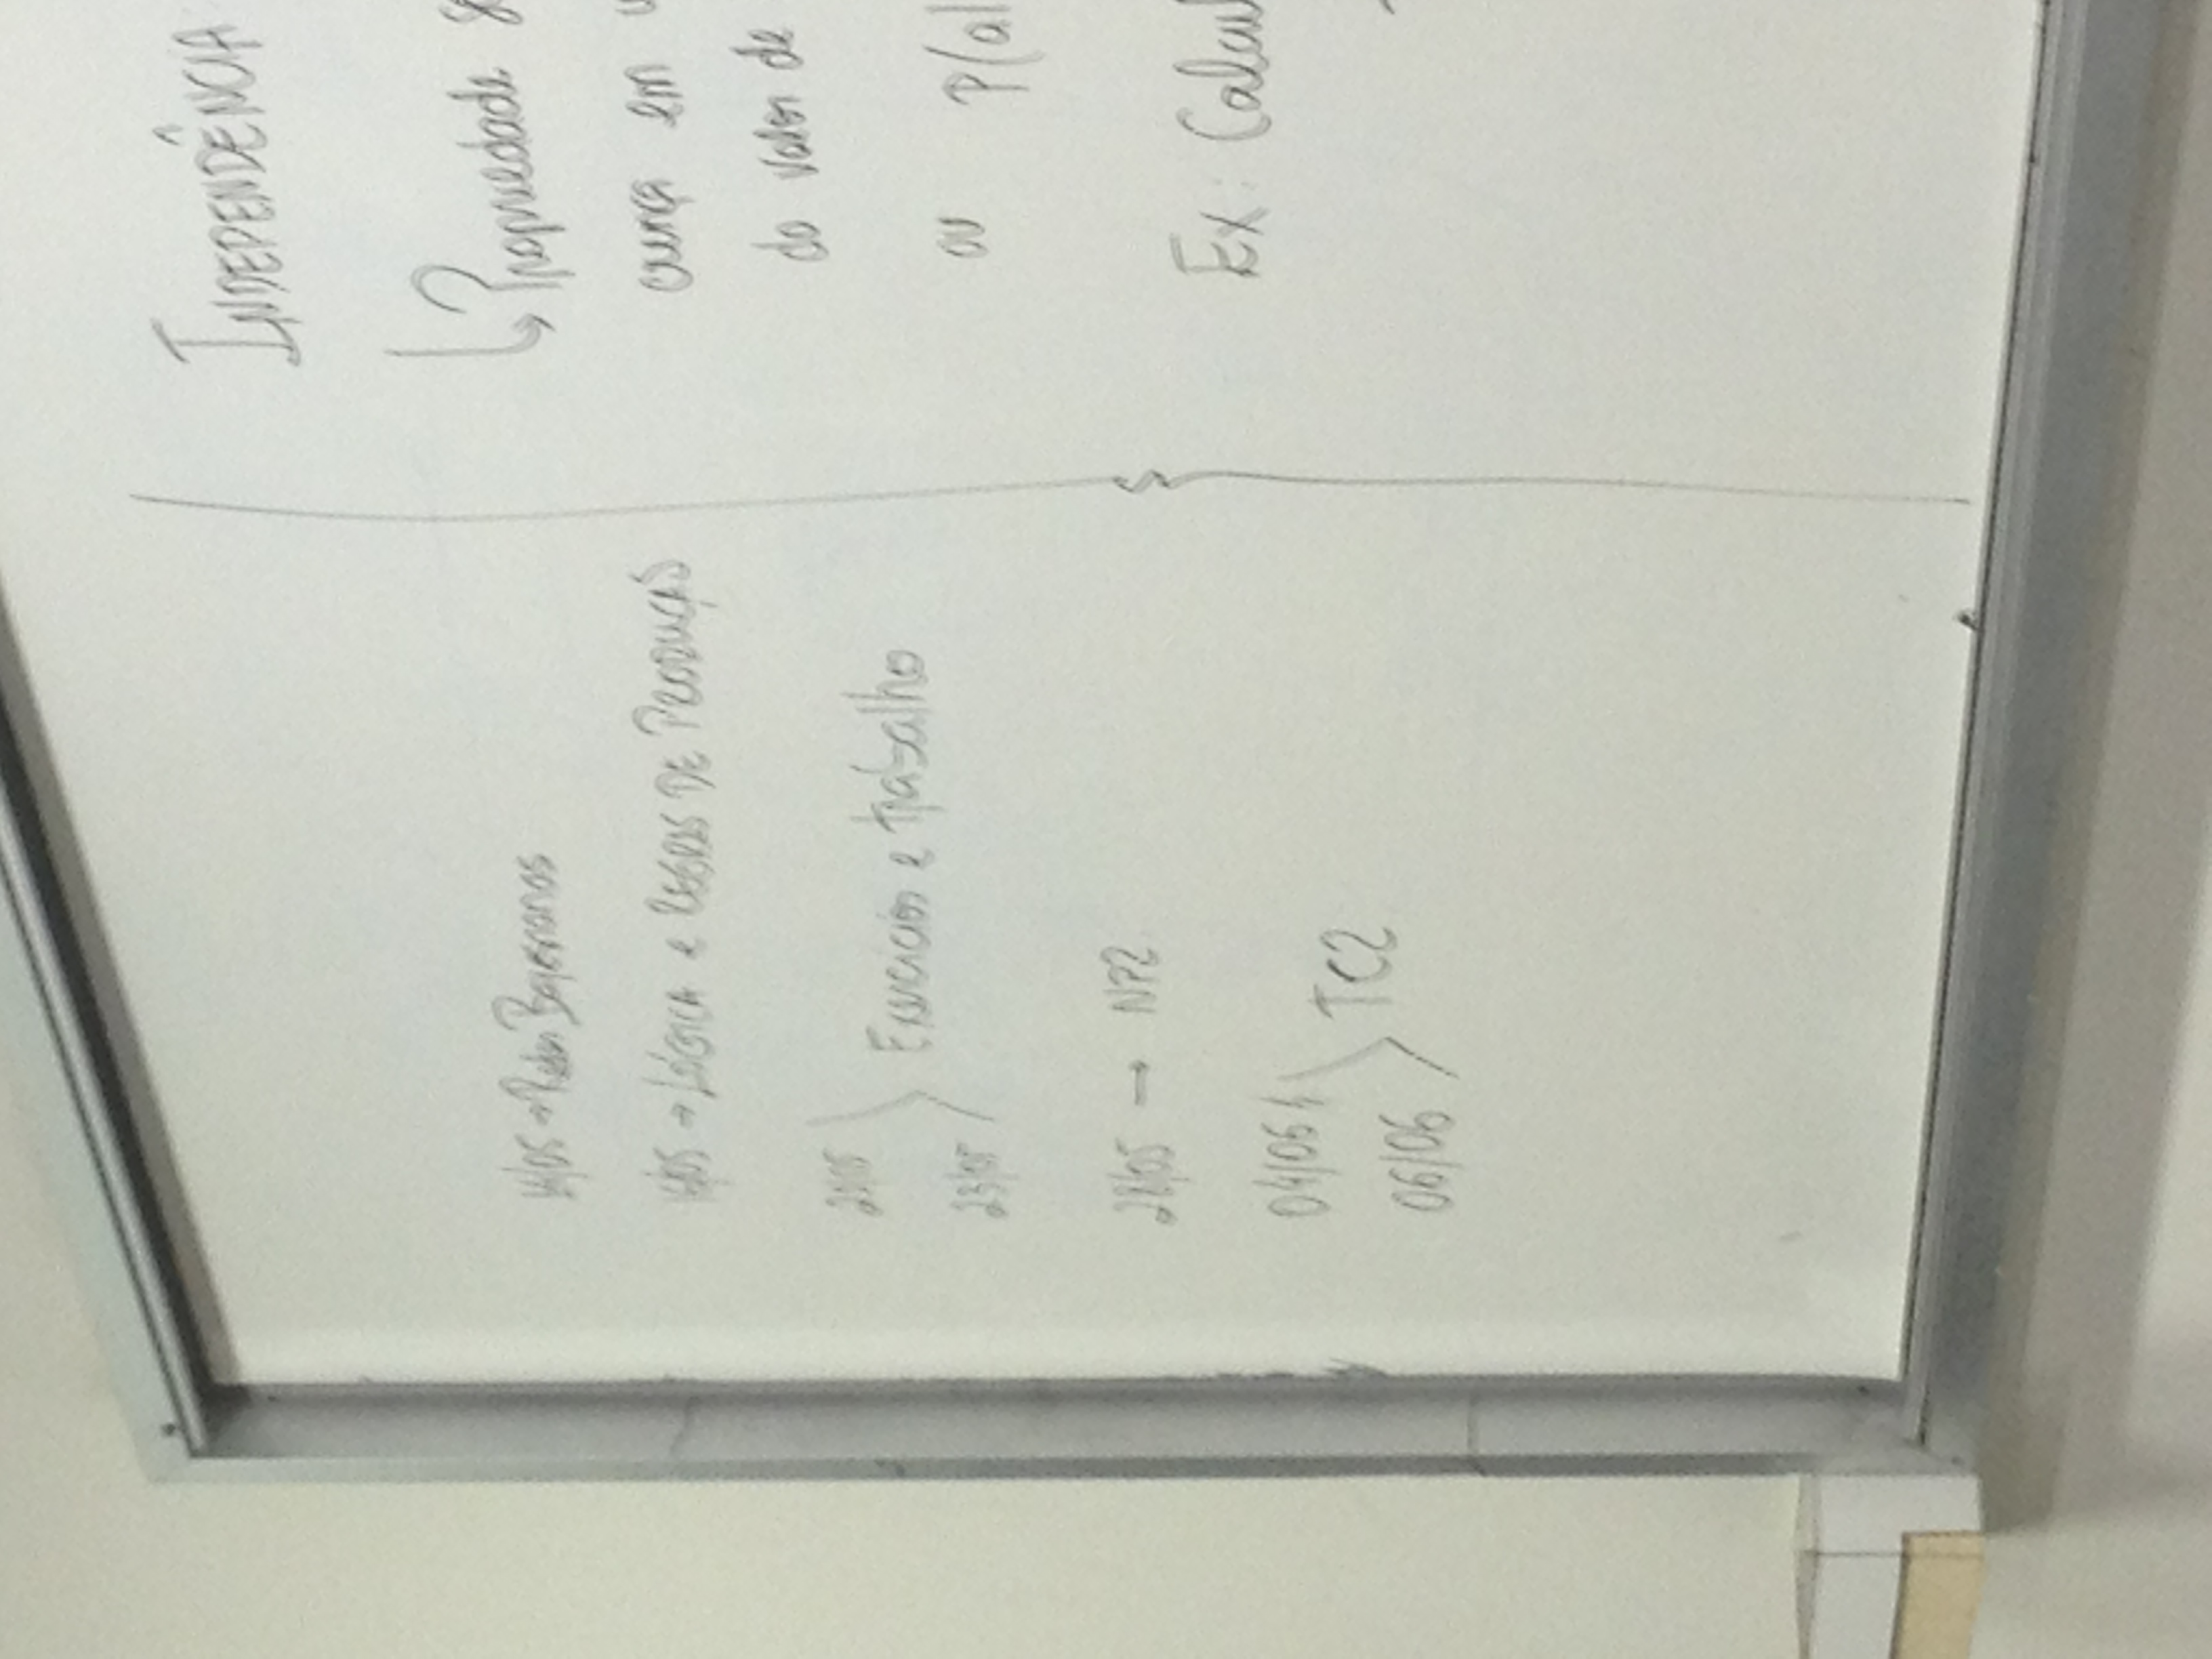 14/05 → Redes Bayesianas
16/05 → LÓGICA e REGRAS DE PRODUÇÃO
21/05
Exercícios e trabalho
23/05
28/05 → NP2
04/06
TC2
06/06
INDEPENDÊNCIA
Propriedade
crença em
do valor de
ou P(a|
Ex: Calcul